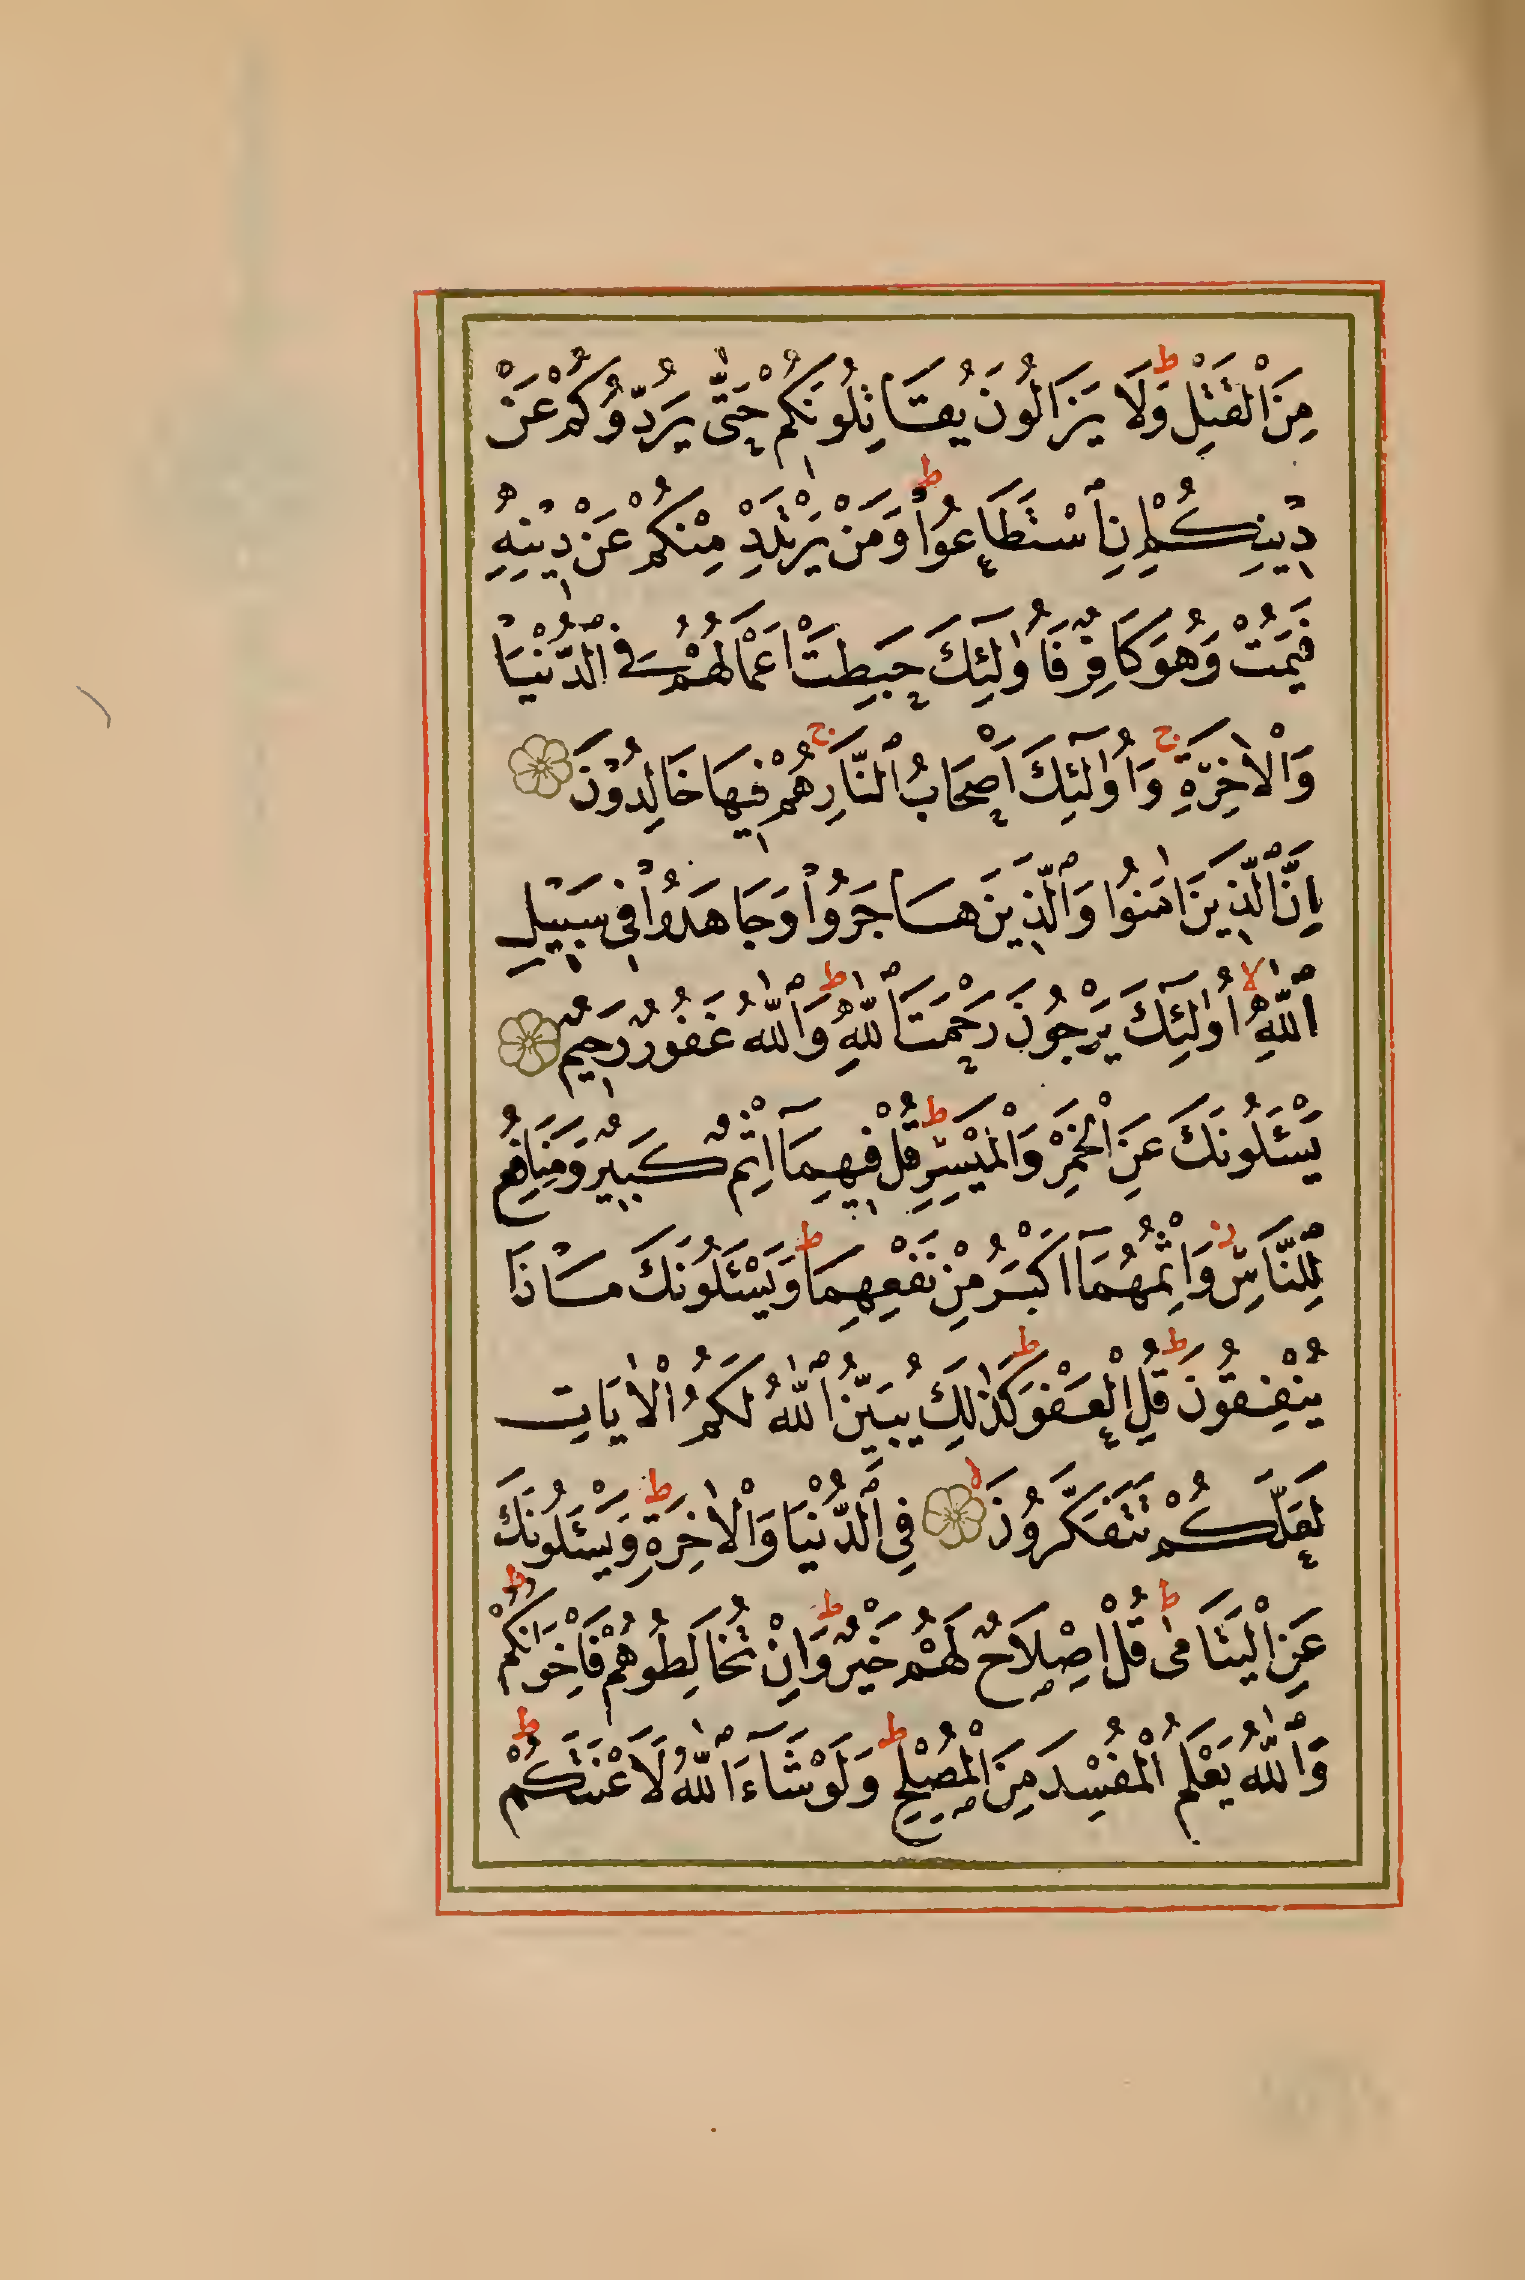 مِنَ الْقَتْلِ ۗ وَلَا يَزَالُونَ يُقَاتِلُونَكُمْ حَتَّىٰ يَرُدُّوكُمْ عَنْ
دِينِكُمْ إِنِ ٱسْتَطَاعُوا ۗ وَمَنْ يَرْتَدِدْ مِنْكُمْ عَنْ دِينِهِ
فَيَمُتْ وَهُوَ كَافِرٌ فَاُولٰٓئِكَ حَبِطَتْ اَعْمَالُهُمْ فِي ٱلدُّنْيَا
وَالْاٰخِرَةِ ج وَاُولٰٓئِكَ اَصْحَابُ ٱلنَّارِ ج هُمْ فِيهَا خَالِدُونَ
اِنَّ ٱلَّذِينَ اٰمَنُوا وَٱلَّذِينَ هَاجَرُوا وَجَاهَدُوا فِي سَبِيلِ
ٱللّٰهِ لا اُولٰٓئِكَ يَرْجُونَ رَحْمَتَ ٱللّٰهِ ط وَٱللّٰهُ غَفُورٌ رَحِيمٌ
يَسْـَٔلُونَكَ عَنِ الْخَمْرِ وَالْمَيْسِرِ ط قُلْ فِيهِمَآ اِثْمٌ كَبِيرٌ وَمَنَافِعُ
لِلنَّاسِ ز وَاِثْمُهُمَآ اَكْبَرُ مِنْ نَفْعِهِمَا ط وَيَسْـَٔلُونَكَ مَاذَا
يُنْفِقُونَ ط قُلِ الْعَفْوَ ط كَذٰلِكَ يُبَيِّنُ ٱللّٰهُ لَكُمُ الْاٰيَاتِ
لَعَلَّكُمْ تَتَفَكَّرُونَ لا فِي ٱلدُّنْيَا وَالْاٰخِرَةِ ط وَيَسْـَٔلُونَكَ
عَنِ الْيَتَامٰى ط قُلْ اِصْلَاحٌ لَهُمْ خَيْرٌ ط وَاِنْ تُخَالِطُوهُمْ فَاِخْوَانُكُمْ ط
وَٱللّٰهُ يَعْلَمُ الْمُفْسِدَ مِنَ الْمُصْلِحِ ط وَلَوْ شَآءَ ٱللّٰهُ لَاَعْنَتَكُمْ ط